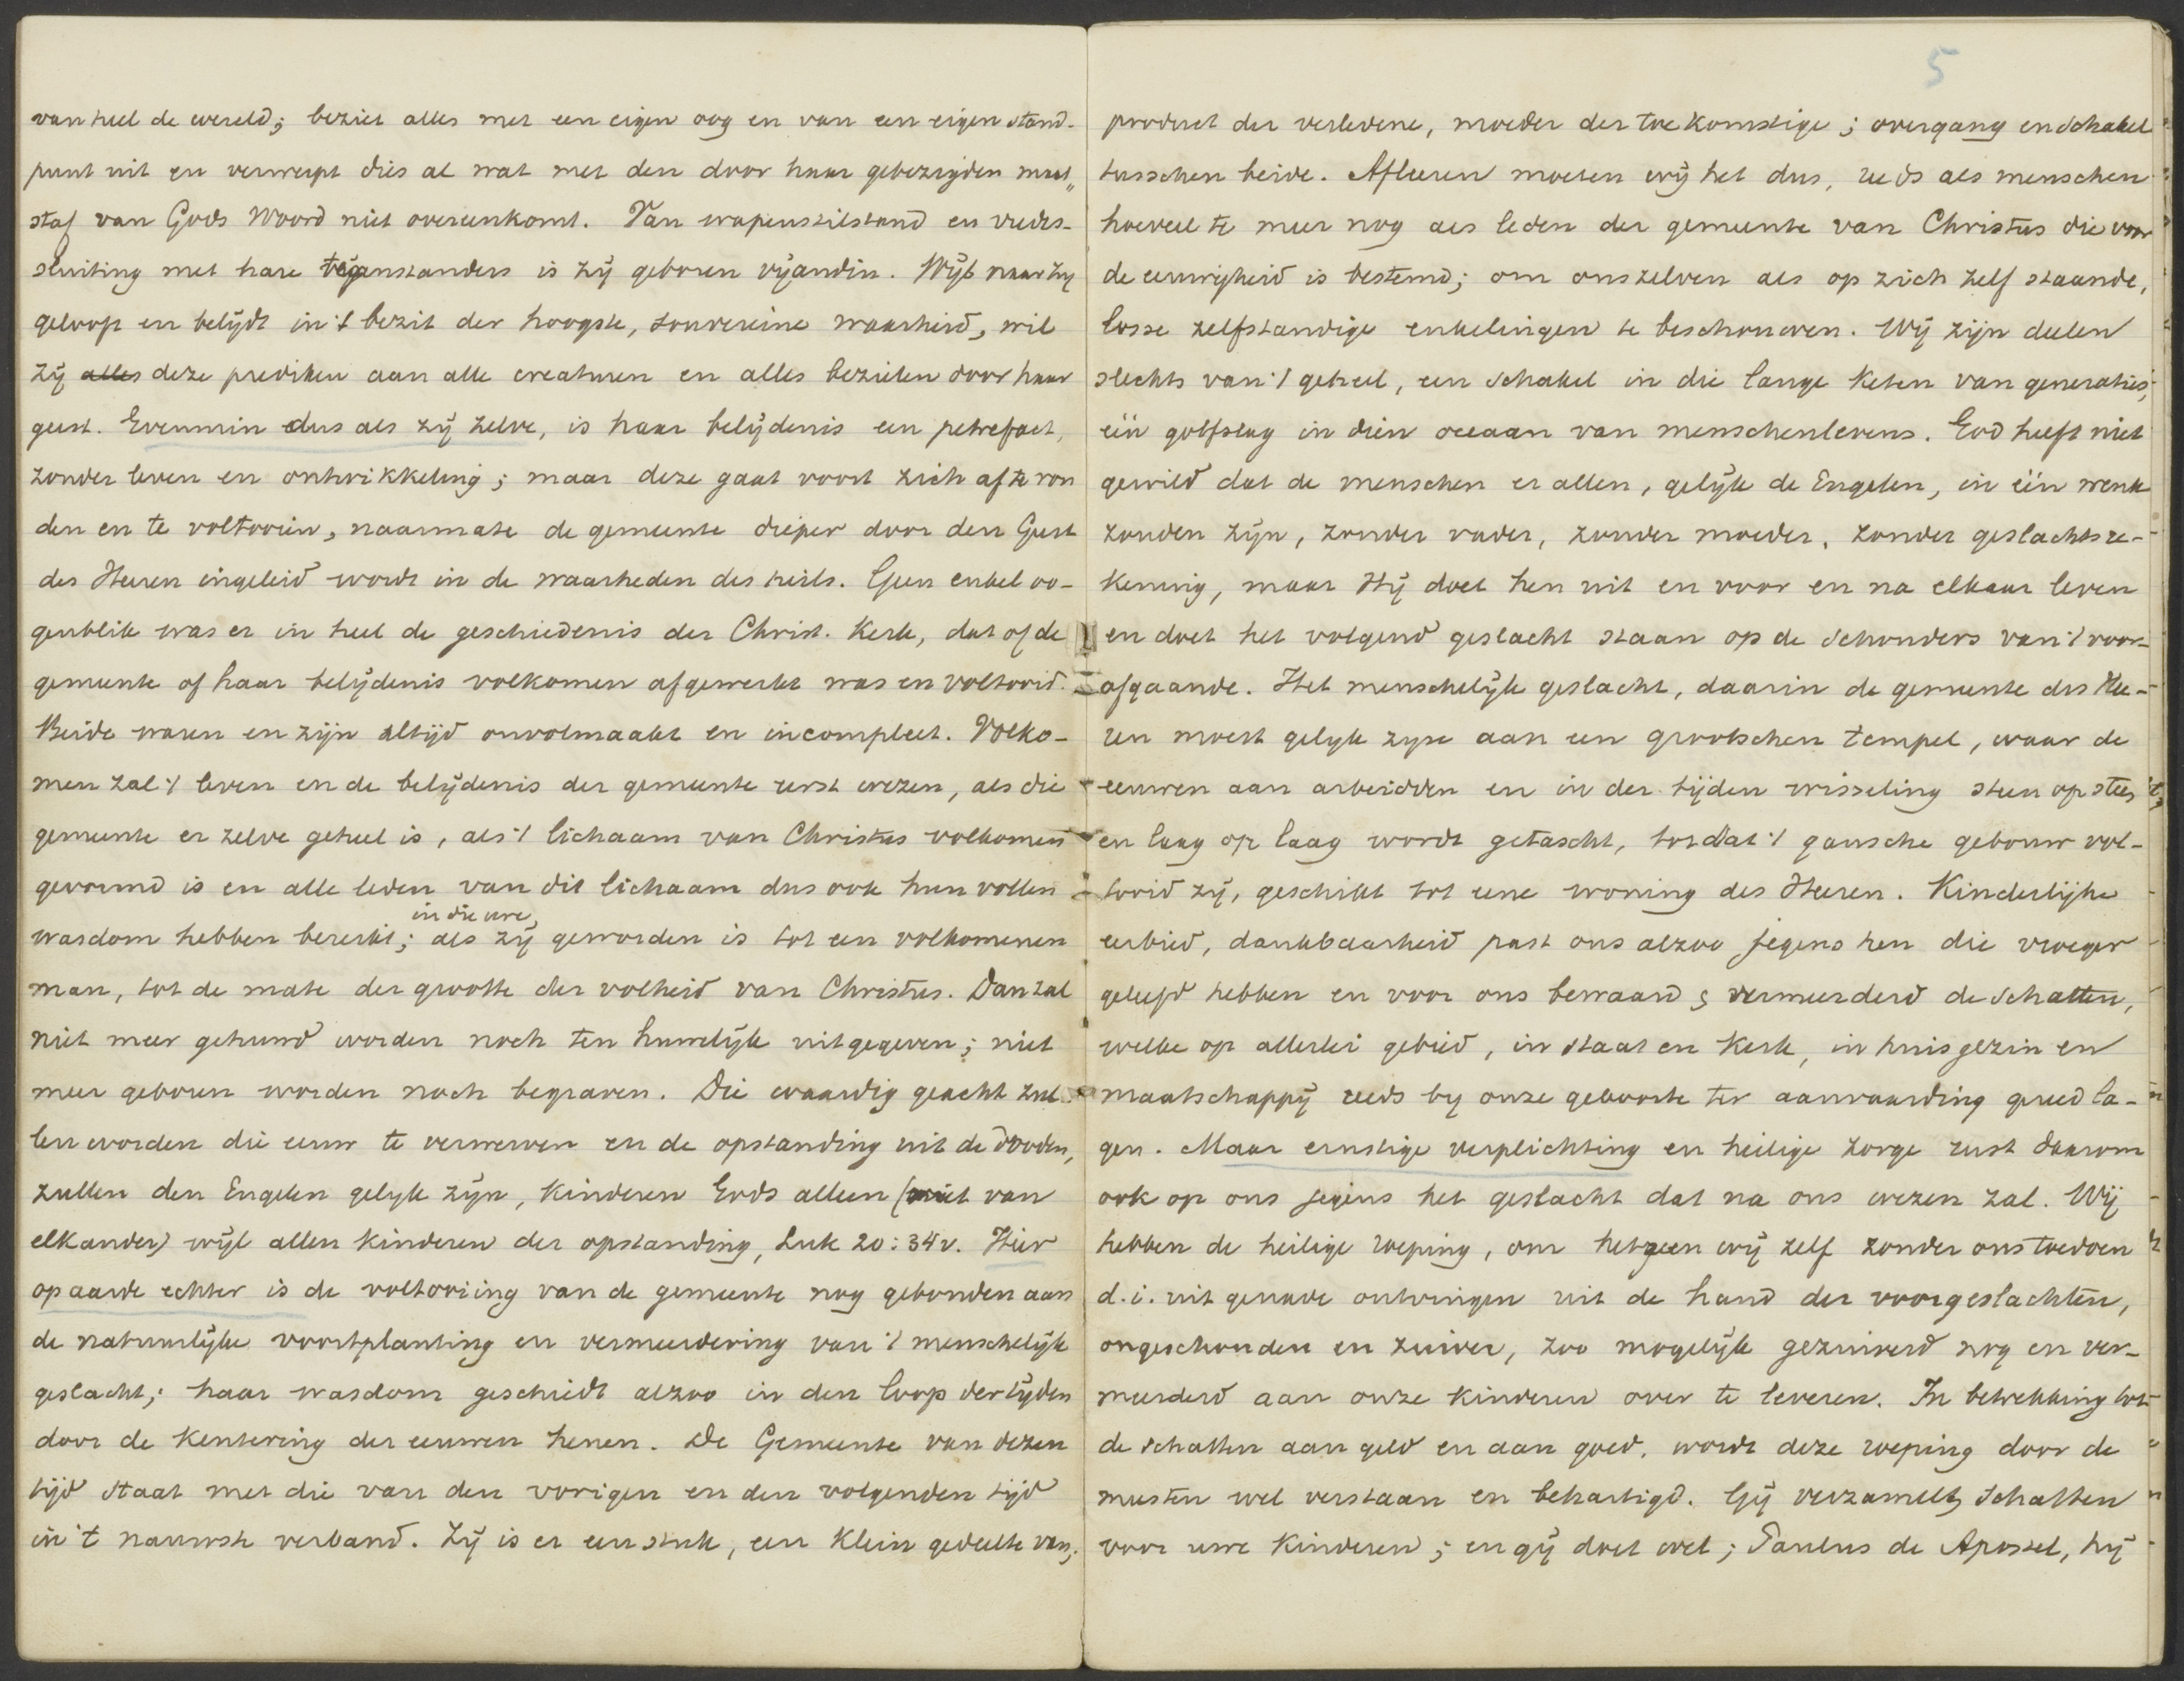 van heel de wereld; beziet alles met een eigen oog en van een eigen stand-
punt uit en verwerpt dies al wat met den door haar gebezigden maat„
staf van Gods Woord niet overeenkomt. Van wapenstilstand en vredes-
sluiting met hare tegenstanders is zij geboren vijandin. Wijl naar zij
geloop en belijdt in 't bezit der hoogste, souvereine waarheid, wil
zij alles deze prediken aan alle creaturen en alles bezielen door haar
geest. Evenmin dus als zij zelve, is haar belijdenis een petrefact,
zonder leven en ontwikkeling; maar deze gaat voort zich af te ron
den en te voltooien, naarmate de gemeente dieper door den Geest
des Heeren ingeleid wordt in de waarheden des heils. Geen enkel oo-
genblik was er in heel de geschiedenis der Christ. Kerk, dat of de
gemeente of haar belijdenis volkomen afgewerkt was en voltooid.
Beide waren en zijn altijd onvolmaakt en incompleet. Volko-
men zal 't leven en de belijdenis der gemeente eerst wezen, als die
gemeente er zelve geheel is, als 't lichaam van Christus volkomen
gevormd is en alle leden van dit lichaam dus ook hun vollen
in die ure,
wasdom hebben bereikt; als zij geworden is tot een volkomenen
man, tot de mate der grootte der volheid van Christus. Dan zal
niet meer gehuwd worden noch ten huwelijk uitgegeven; niet
meer geboren worden noch begraven. Die waardig geacht zul
len worden die eeuw te verwerven en de opstanding uit de dooden,
zullen den Engelen gelijk zijn, kinderen Gods alleen (niet van
elkander) wijl allen kinderen der opstanding, Luk 20:34v. Hier
op aarde echter is de voltooiing van de gemeente nog gebonden aan
de natuurlijke voortplanting en vermeerdering van 't menschelijk
geslacht; haar wasdom geschiedt alzoo in den loop der tijden
door de kentering der eeuwen henen. De Gemeente van dezen
tijd staat met die van den vorigen en den volgenden tijd
in 't nauwste verband. Zij is er een stuk, een klein gedeelte van;
5
product der verledene, moeder der toekomstige; overgang en schakel
tusschen beide. Afleeren moeten wij het dus, reeds als menschen
hoeveel te meer nog als leden der gemeente van Christus die voor
de eeuwigheid is bestemd; om onszelven als op zich zelf staande,
losse zelfstandige enkelingen te beschouwen. Wij zijn deelen
slechts van 't geheel, een schakel in die lange keten van generaties,
één golfslag in dien oceaan van menschenlevens. God heeft niet
gewild dat de menschen er allen, gelijk de Engelen, in één wenk
zouden zijn, zonder vader, zonder moeder, zonder geslachtsre-
kening, maar Hij doet hen uit en voor en na elkaar leven
en doet het volgend geslacht staan op de schouders van 't voor-
afgaande. Het menschelijk geslacht, daarin de gemeente des Hee-
ren moest gelijk zijn aan een grootschen tempel, waar de
eeuwen aan arbeidden en in der tijden wisseling steen op steen
en laag op laag wordt getascht, totdat 't gansche gebouw vol-
tooid zij, geschikt tot eene woning des Heeren. Kinderlijke
eerbied, dankbaarheid past ons alzoo jegens hen die vroeger
geleefd hebben en voor ons bewaard & vermeerderd de schatten,
welke op allerlei gebied, in staat en kerk, in huisgezin en
maatschappij reeds bij onze geboorte ter aanvaarding gereed la-
gen. Maar ernstige verplichting en heilige zorge rust daarom
ook op ons jegens het geslacht dat na ons wezen zal. Wij
hebben de heilige roeping, om hetgeen wij zelf zonder ons toedoen
d.i. uit genade ontvingen uit de hand der voorgeslachten,
ongeschonden en zuiver, zoo mogelijk gezuiverd nog en ver-
meerderd aan onze kinderen over te leveren. In betrekking tot
de schatten aan geld en aan goed, wordt deze roeping door de
meesten wel verstaan en behartigd. Gij verzamelt schatten
voor uwe kinderen; en gij doet wel; Paulus de Apostel, hij